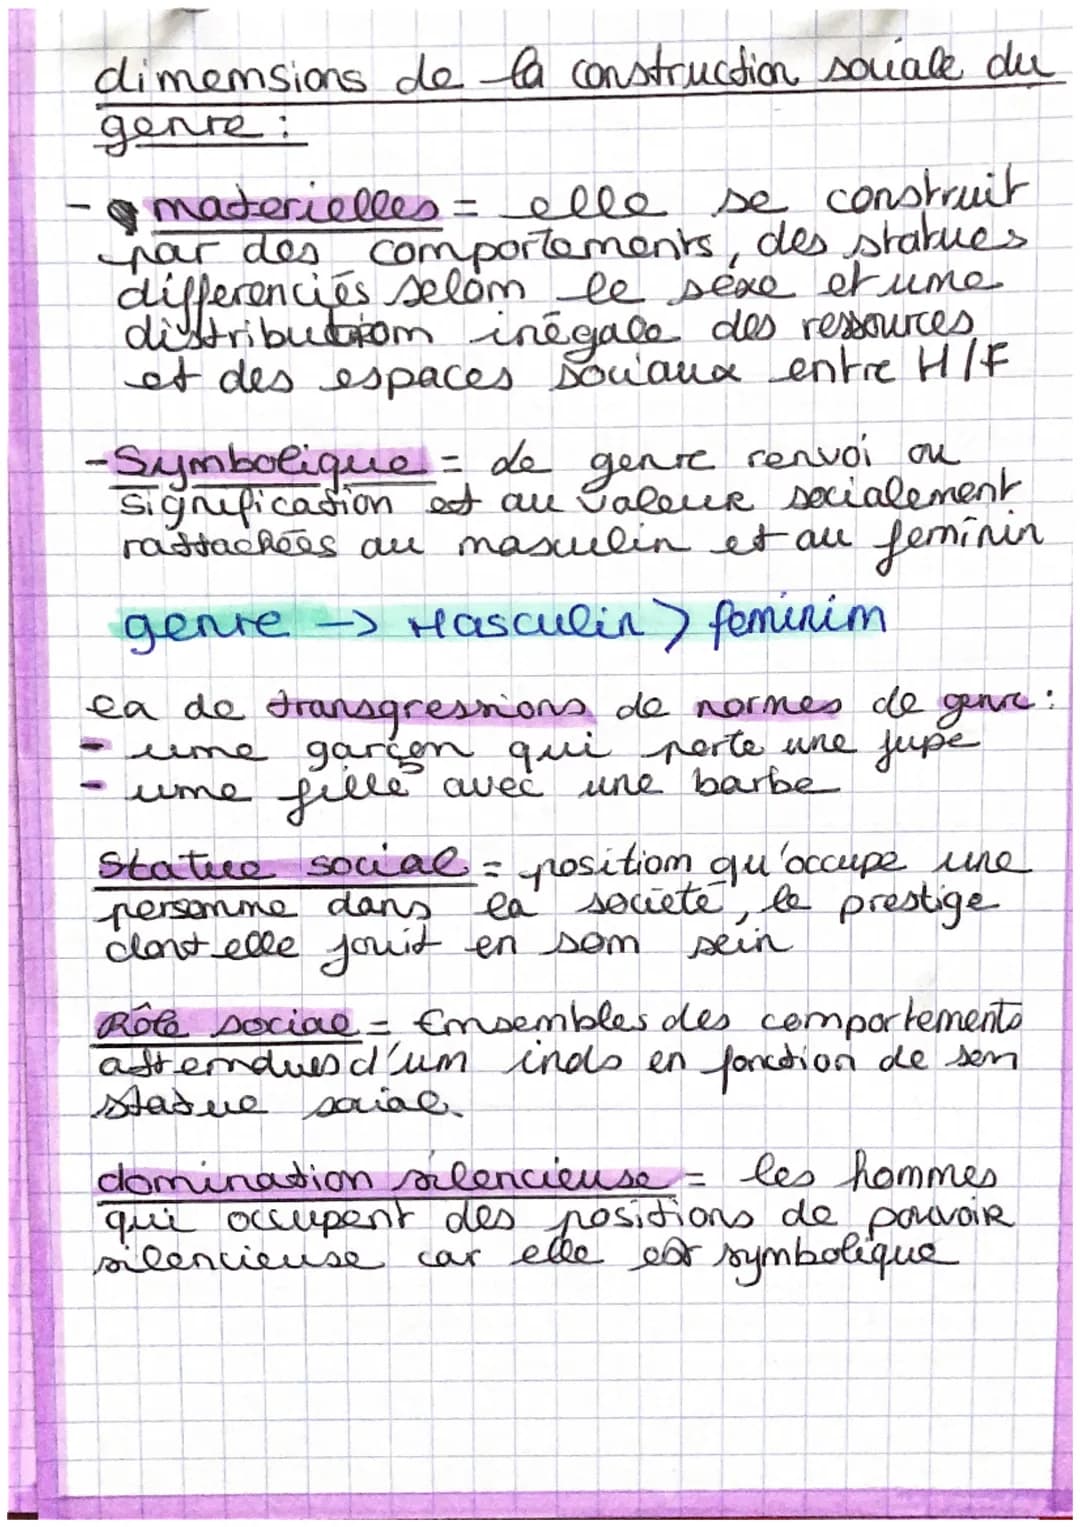 dimemsions de la construction sociale du
genre :
- materielles = elle se construit
par des comportements, des statues
differenciés selom le sexe et ume
distributiom inégale des ressources
et des espaces sociaux entre H/F
- Symbolique = de genre renvoi ou
signification et au valeur socialement
rattachées au masculin et au feminin
genre -> Masculin > feminim
ea de transgressions de normes de genre :
- ume garçon qui porte une jupe
- ume fille avec une barbe
Statue social = positiom qu'occupe une
personme dans la societé, le prestige
dont elle jouit en som sein
Rôle social = Emsembles des comportements
attemdues d'um inds en fonction de som
statue social.
domination silencieuse = les hommes
qui occupent des positions de pouvoir
silencieuse car elle est symbolique